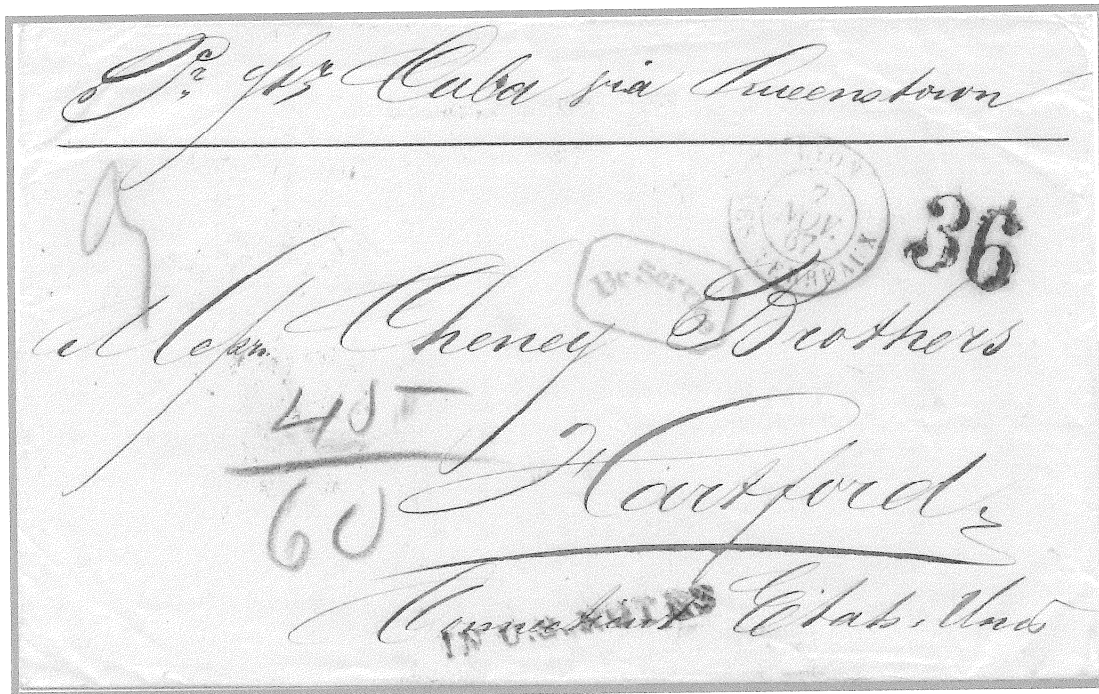 Pr. Str Cuba via Queenstown
LYON
2
NOV.
67
LES TERREAUX
36
Br. Service
Messrs. Cheney Brothers
45
60
Hartford
Connecticut Etats-Unis
IN U.S. NOTES